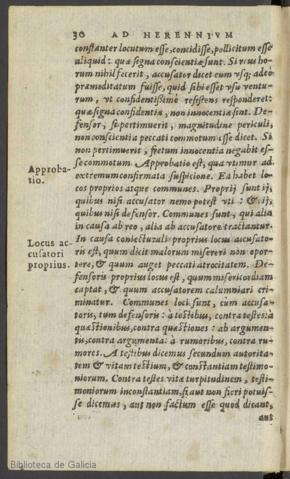 30 AD HERENNIVM
constanter locutum esse, concidisse, pollicitum esse
aliquid: quæ signa conscientiæ sunt. Si reus ho-
rum nihil fecerit, accusator dicet eum vsq; adeò
præmeditatum fuisse, quid sibi esset vsu ventu-
rum, vt confidentissimè resistens responderet:
quæ signa confidentiæ, non innocentiæ sint. De-
fensor, si pertimuerit, magnitudine periculi,
non conscientia peccati commotum esse dicet. Si
non pertimuerit, fretum innocentia negabit es-
se commotum. Approbatio est, qua vtimur ad
Approba-
tio.
extremum confirmata suspicione. Ea habet lo-
cos proprios atque communes. Proprij sunt ij,
quibus nisi accusator nemo potest vti: & ij,
quibus nisi defensor. Communes sunt, qui alia
in causa ab reo, alia ab accusatore tractantur.
In causa coniecturali proprius locus accusato-
Locus ac-
cusatori
proprius.
ris est, quum dicit malorum misereri non opor-
tere, & quum auget peccati atrocitatem. De-
fensoris proprius locus est, quum misericordiam
captat, & quum accusatorem calumniari cri-
minatur. Communes loci sunt, cùm accusa-
toris, tum defensoris: à testibus, contra testes: à
quæstionibus, contra quæstiones: ab argumen-
tis, contra argumenta: à rumoribus, contra ru-
mores. A testibus dicemus secundum autorita-
tem & vitam testium, & constantiam testimo-
niorum. Contra testes vitæ turpitudinem, testi-
moniorum inconstantiam, si aut non fieri potuis-
se dicemus, aut non factum esse quod dicant,
aut
Biblioteca de Galicia